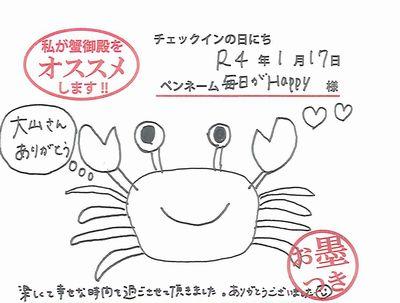 私が蟹御殿を
オススメ
します!!
チェックインの日にち
R4年1月17日
ペンネーム 毎日がHappy 様
大山さん
ありがとう
お墨つき
楽しくて幸せな時間を過ごさせて頂きました。ありがとうございました